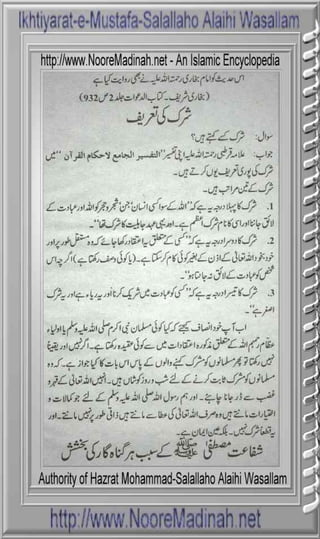 Ikhtiyarat-e-Mustafa-Salallaho Alaihi Wasallam
http://www.NooreMadinah.net - An Islamic Encyclopedia
اس حدیث کو امام بخاری رحمتہ اللہ علیہ نے بھی روایت کیا ہے
(بخاری شریف۔ کتاب الدعوات جلد 2 ص 932)
شرک کی تعریف
سوال: شرک کسے کہتے ہیں؟
جواب: علامہ قرطبی رحمتہ اللہ علیہ اپنی تفسیر "التفسیر الجامع لاحکام القرآن" میں
شرک کی پوری تعریف یوں کرتے ہیں۔
شرک کے تین مراتب ہیں۔
1. شرک کا پہلا درجہ یہ ہے کہ "اللہ کے سوا کسی انسان، جن، شجر و حجر کو اللہ اور عبادت کے
لائق جاننا اور اسی کا نام شرک اعظم ہے۔ اور یہی عہد جاہلیت کا شرک تھا"۔
2. شرک کا دوسرا درجہ یہ ہے کہ "کسی کے متعلق یہ اعتقاد رکھا جائے کہ وہ مستقل طور پر اور
خود بخود اللہ تعالی کے اذن کے بغیر کوئی کام کر سکتا ہے۔ (یا کوئی وصف رکھتا ہے) اگرچہ اس
شخص کو عبادت کے لائق نہ جانتا ہو"۔
3. شرک کا تیسرا درجہ یہ ہے کہ "کسی کو عبادت میں شریک کرنا اور یہ ریاء ہے اور یہ شرک
اصغر ہے"۔
اب آپ خود انصاف کیجئے کہ کیا کوئی مسلمان نبی اکرم صلی اللہ علیہ وسلم یا اولیاء
عظام کے متعلق مذکورہ اعتقادات میں سے کوئی عقیدہ رکھتا ہے۔ اگر نہیں اور یقینا
نہیں رکھتا تو پھر مسلمانوں کو مشرک کہنے والوں کے پاس اس بات کا کیا جواز ہے۔ کہ وہ
مسلمانوں کو مشرک ثابت کرنے کے لئے شب و روز کوشاں ہیں۔ انہیں اللہ تعالی کے قہر و
غضب سے ڈر جانا چاہئے۔ اور ہم رسول اللہ صلی اللہ علیہ وسلم کے لئے جو کمالات و
اختیارات مانتے ہیں وہ صرف اللہ تعالی کی عطا سے مانتے ہیں ذاتی طور پر نہیں مانتے۔ اور
یہ قطعاً شرک نہیں۔ بلکہ عین ایمان ہے۔
شفاعت مصطفیٰ ﷺ کے سبب ہر گناہ گار کی بخشش
Authority of Hazrat Mohammad-Salallaho Alaihi Wasallam
http://www.NooreMadinah.net